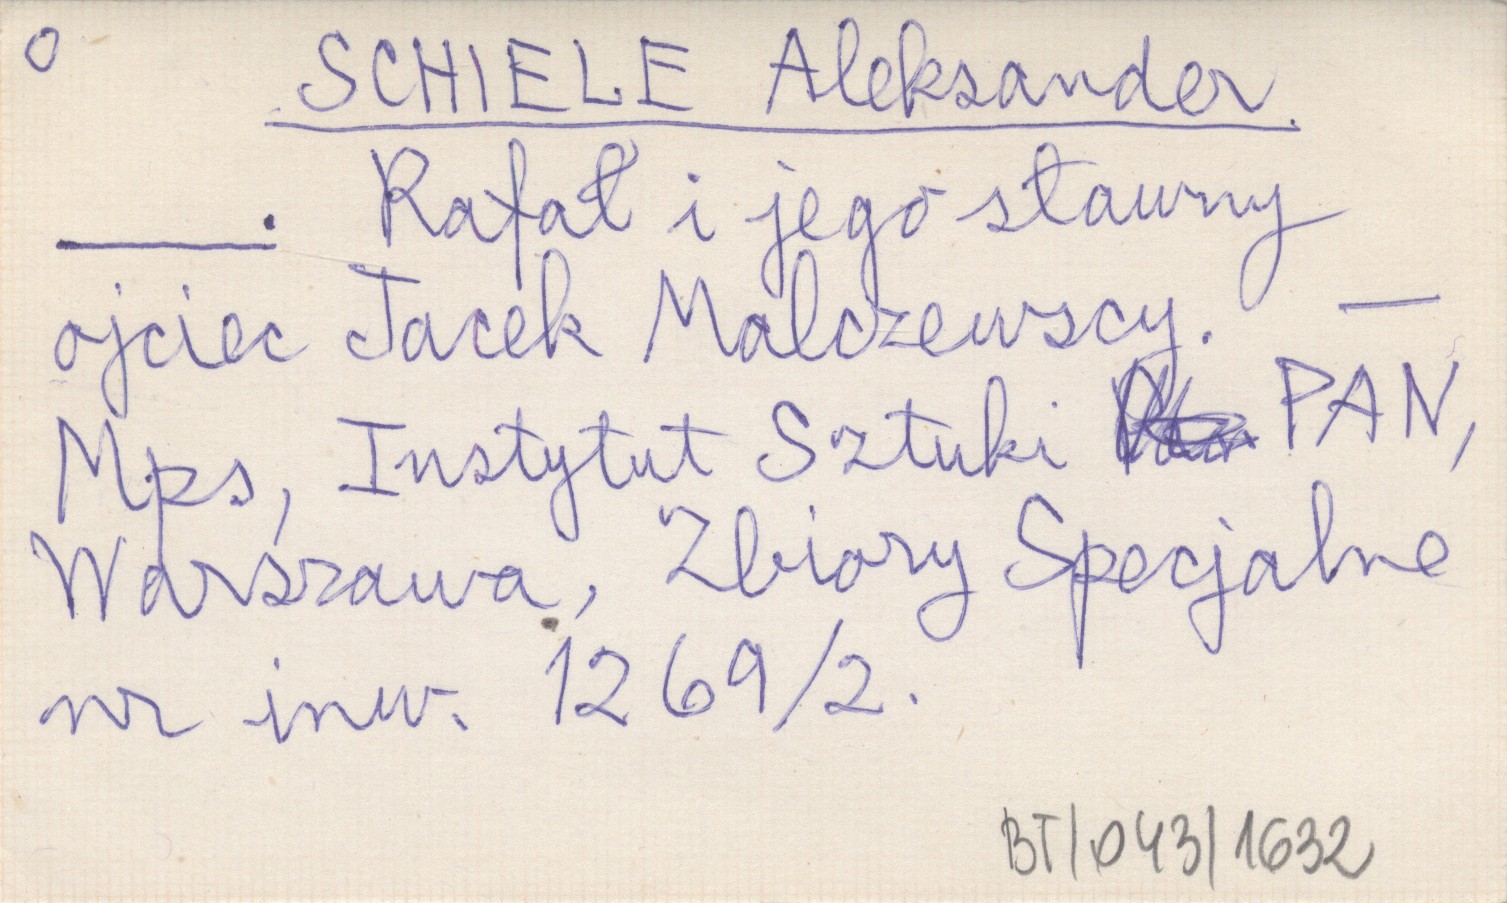 o
SCHIELE Aleksander.
____. Rafał i jego sławny
ojciec Jacek Malczewscy. —
Mps, Instytut Sztuki PAN,
Warszawa, Zbiory Specjalne
nr inw. 1269/2.
BT/043/1632